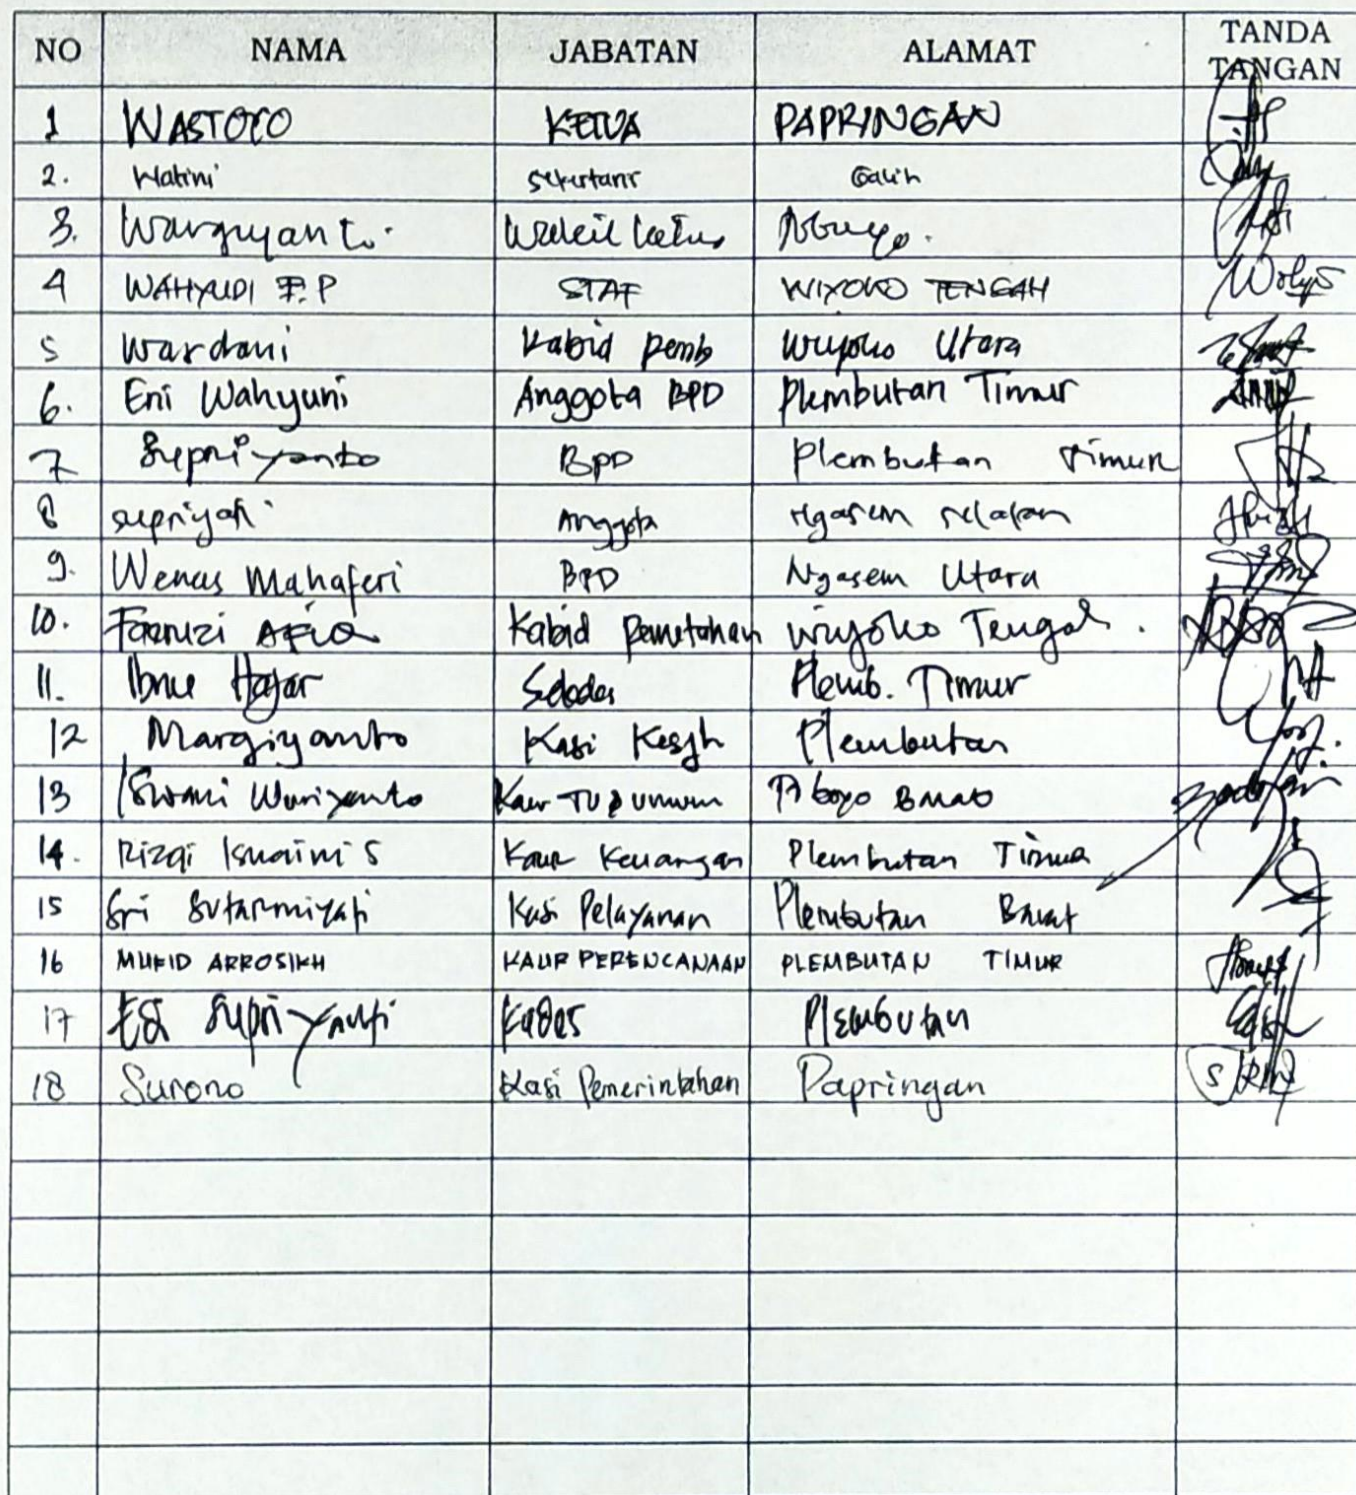 NO NAMA JABATAN ALAMAT TANDA TANGAN
1 WASTOYO KETUA PAPRINGAN
2. Watini Sekertaris Galih
3. Wargiyanto. Wakil Ketua
4 WAHYUDI F.P STAF WIYOKO TENGAH
5 Wardani Kabid Pemb Wiyoko Utara
6. Eni Wahyuni Anggota BPD Plembutan Timur
7 Supriyanto BPD Plembutan Timur
8 Supriyati Anggota Ngasem Selatan
9. Wenas Mahaferi BPD Ngasem Utara
10. Fazruzi Afiq Kabid Pemetahan Wiyoko Tengah.
11. Ibnu Hajar Sekdes Plemb. Timur
12 Margiyanto Kasi Kesjh Plembutan
13 Iswani Wuriyanto Kaur TU & Umum Barat
14. Rizqi Isnaini S Kaur Keuangan Plembutan Timur
15 Sri Sutarmiyati Kasi Pelayanan Plembutan Barat
16 MUFID ARROSIKH KAUR PERENCANAAN PLEMBUTAN TIMUR
17 Edi Supriyanti Kades Plembutan
18 Surono Kasi Pemerintahan Papringan